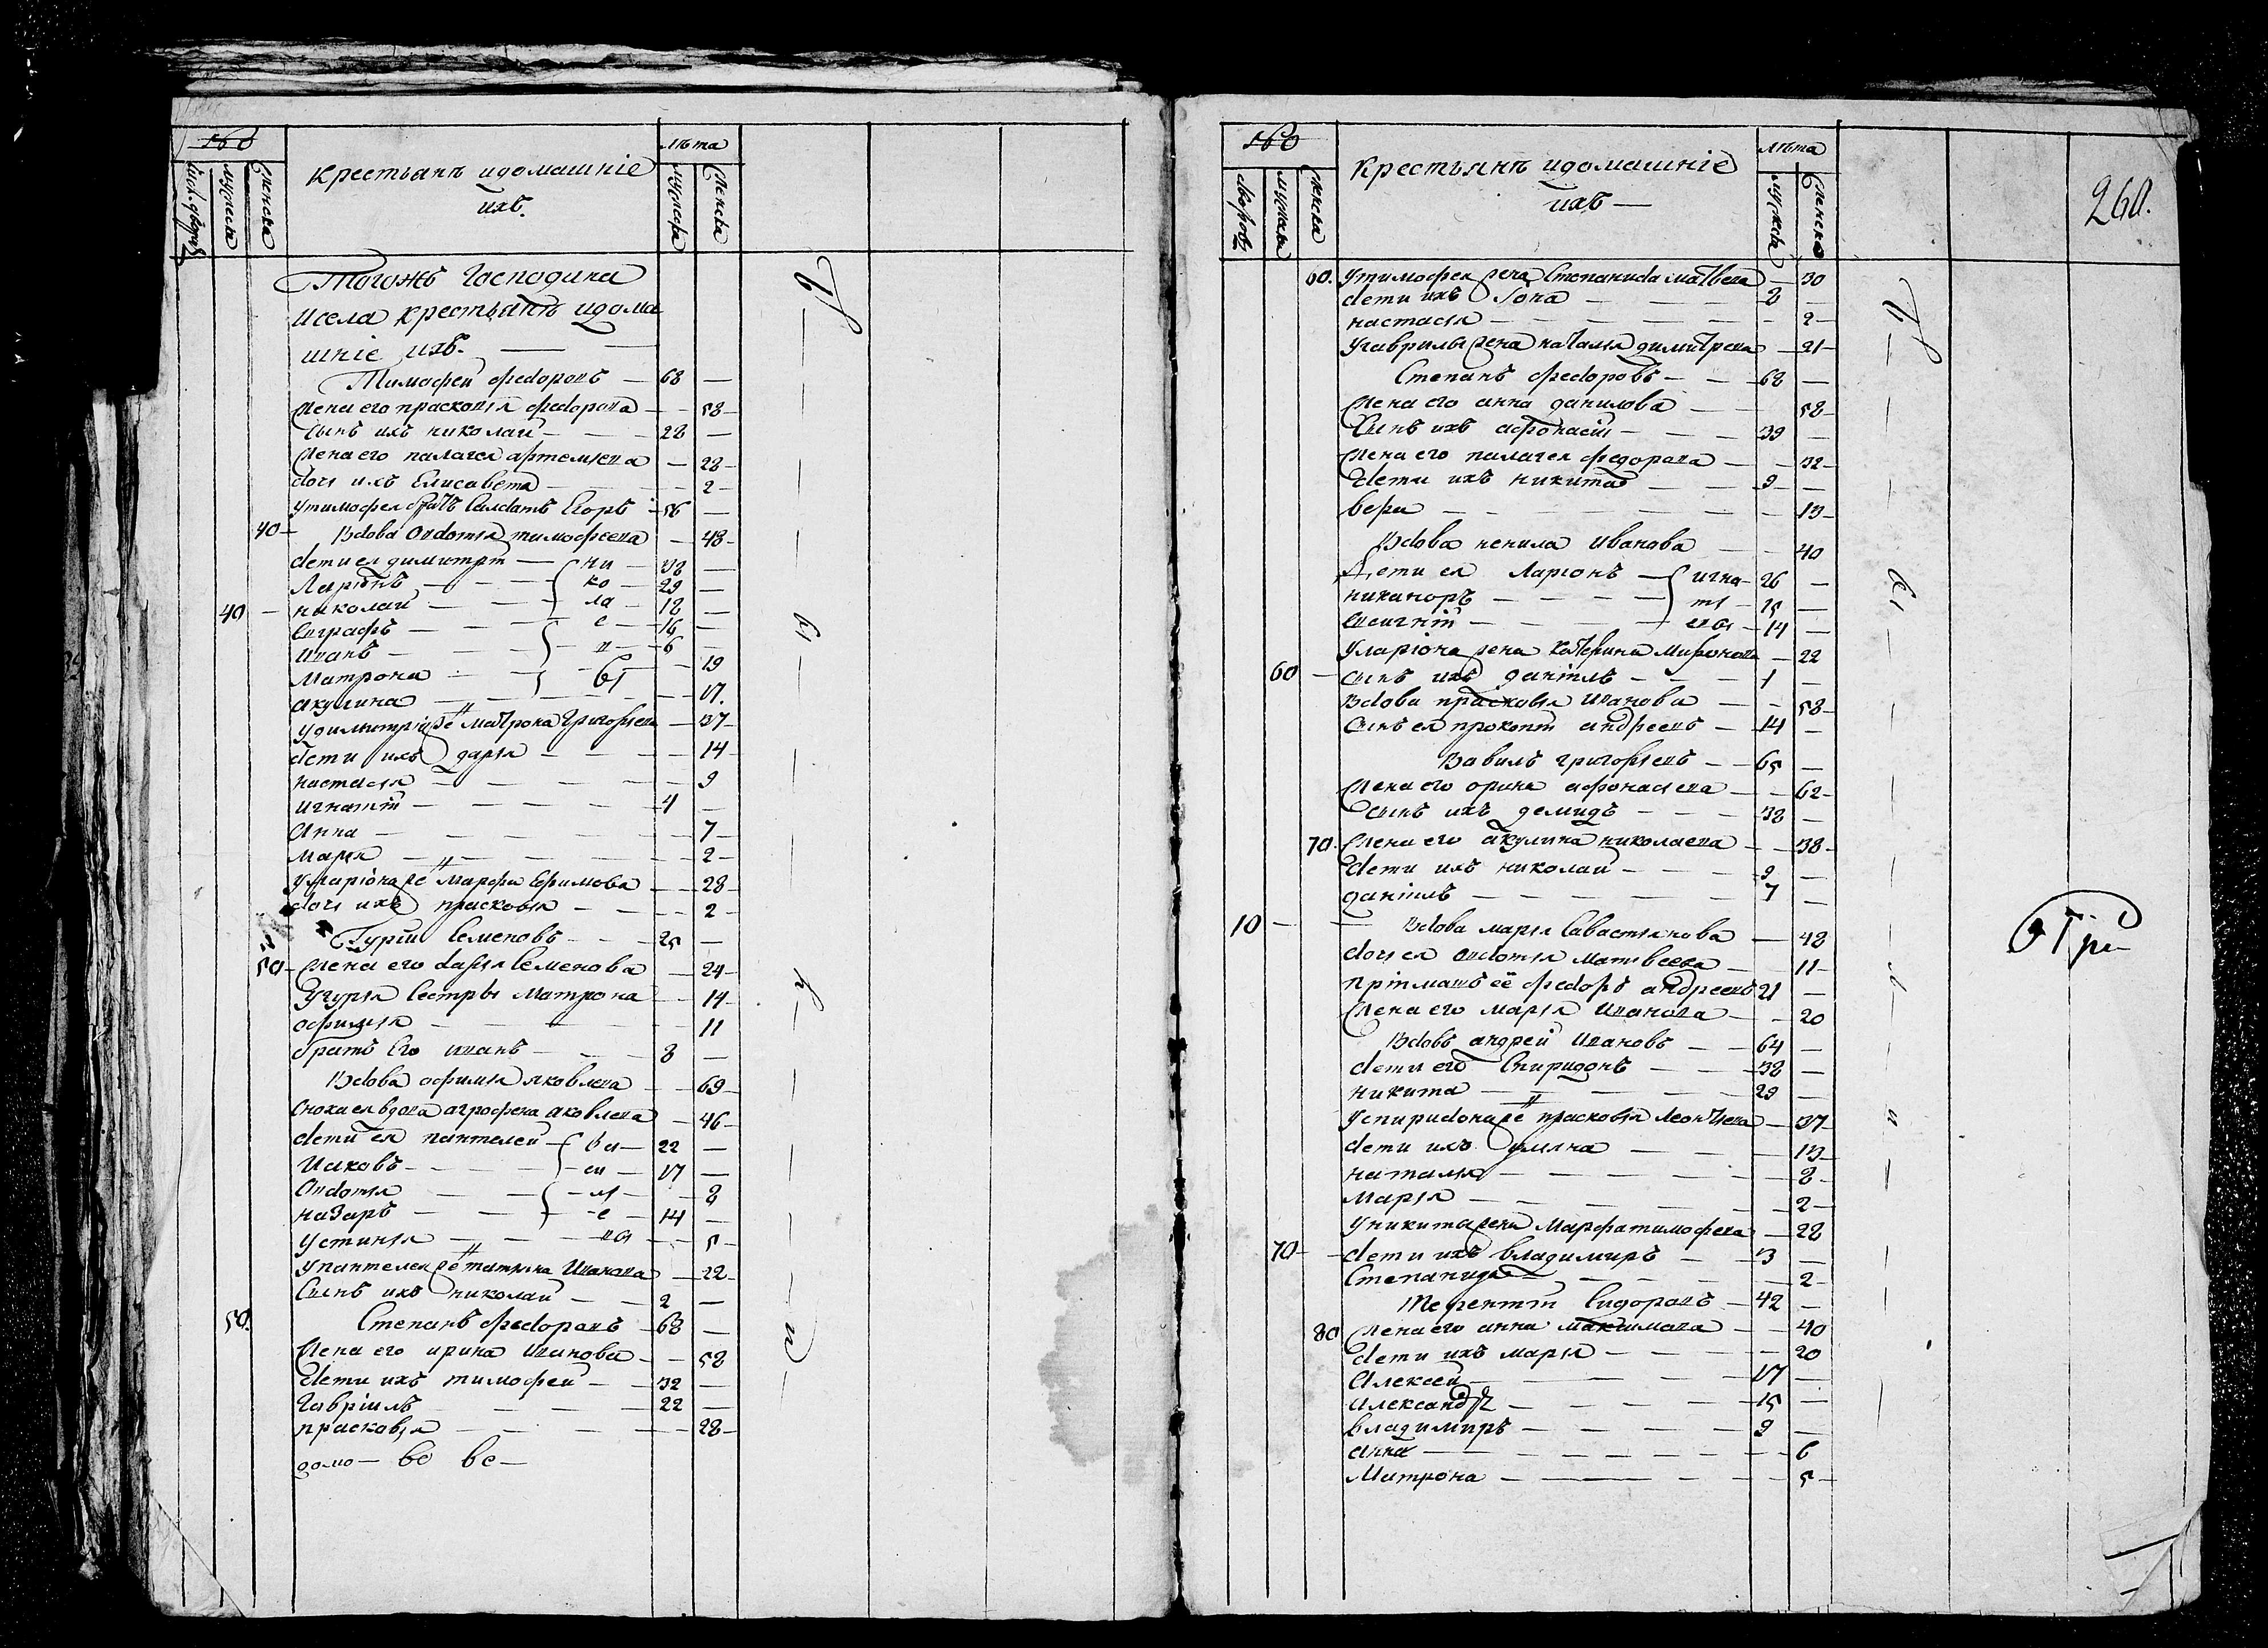 крестьянъ идомашніе
ихъ.
лѣта
мужеска
женска
мужеска
женска
Тогожъ Господина
исела крестьянъ идома
шніе ихъ.
Тимофей федоровъ — 68 —
Жена его прасковья федорова — 58
Сынъ ихъ николай — 28 —
Жена его палагея артемьева — 28
дочь ихъ Елисавета — 2
утимофея братъ Салдатъ Егоръ — 56 —
40 — Вдова Овдотья тимофеева — 48
дети ея димитрїй — ни — 38 —
Ларїонъ — ко — 29 —
40 — николай — ла — 18 —
Евграфъ — е — 16 —
иванъ — в — 6 —
матрона — ы — 19
акулина — 17.
удимитрія же матрона Григорьева — 37
дети ихъ дарья — 14
настасья — 9
игнатїй — 4 —
Анна — 7
марья — 2
уларіона же марфа Ефимова — 28
дочь ихъ прасковья — 2
Гурій Семеновъ — 25 —
50 — Жена его дарья Семенова — 24
Угурья Сестры Матрона — 14
офимья — 11
братъ Его иванъ — 8 —
Вдова офимья яковлева — 69
Сноха ея вдова агрофена яковлева — 46
дети ея пантелей — ва — 22 —
Иаковъ — си — 17 —
Овдотья — лі — 8
назаръ — е — 14 —
устинья — вы — 5
упантелея же татьяна Иванова — 22
Сынъ ихъ николай — 2 —
50. Степанъ федоровъ — 68 —
Жена его ирина Иванова — 58
дети ихъ тимофей — 32 —
Гавріилъ — 22 —
прасковья — 28
260.
крестьянъ идомашніе
ихъ —
лѣта
дворовъ
мужеска
женска
мужеска
женска
60. утимофея жена Степанида матвева — 30
дети ихъ Іона — 8 —
настасья — 2
угаврилы жена наталья димитрева — 21
Степанъ федоровъ — 68 —
Жена его анна данилова — 58
Сынъ ихъ афонасій — 39 —
Жена его палагея федорова — 32
дети ихъ никита — 9 —
вера — 13
Вдова ненила иванова — 40
Дети ея Ларіонъ — игна — 26 —
никаноръ — ті — 15 —
Евсигнїй — евы — 14 —
уларіона жена катерина миронова — 22
60 — сынъ ихъ данїилъ — 1 —
вдова прасковья иванова — 58
Сынъ ея прокопїй андреевъ — 14 —
Вавилъ григорьевъ — 65 —
Жена его орина афонасьева — 62
сынъ ихъ демидъ — 38 —
70. Жена его акулина николаева — 38
дети ихъ николай — 9 —
данїилъ — 7 —
10 — Вдова марья Савастьянова — 48
дочь ея овдотья матвеева — 11
прїимашъ её федоръ андреевъ 21 —
Жена его марья иванова — 20
Вдовъ андрей ивановъ — 64 —
дети его Спиридонъ — 38 —
никита — 29 —
успиридона же прасковья леонтьева — 37
дети ихъ ульяна — 13
наталья — 8
марья — 2
уникиты жена марфа тимофева — 28
70 — дети ихъ владимиръ — 3 —
Степанида — 2
Терентїй Сидоровъ — 42 —
80 Жена его анна максимова — 40
дети ихъ марья — 20
Алексей — 17 —
александръ — 15 —
владимиръ — 9 —
анна — 6
Матрона — 5